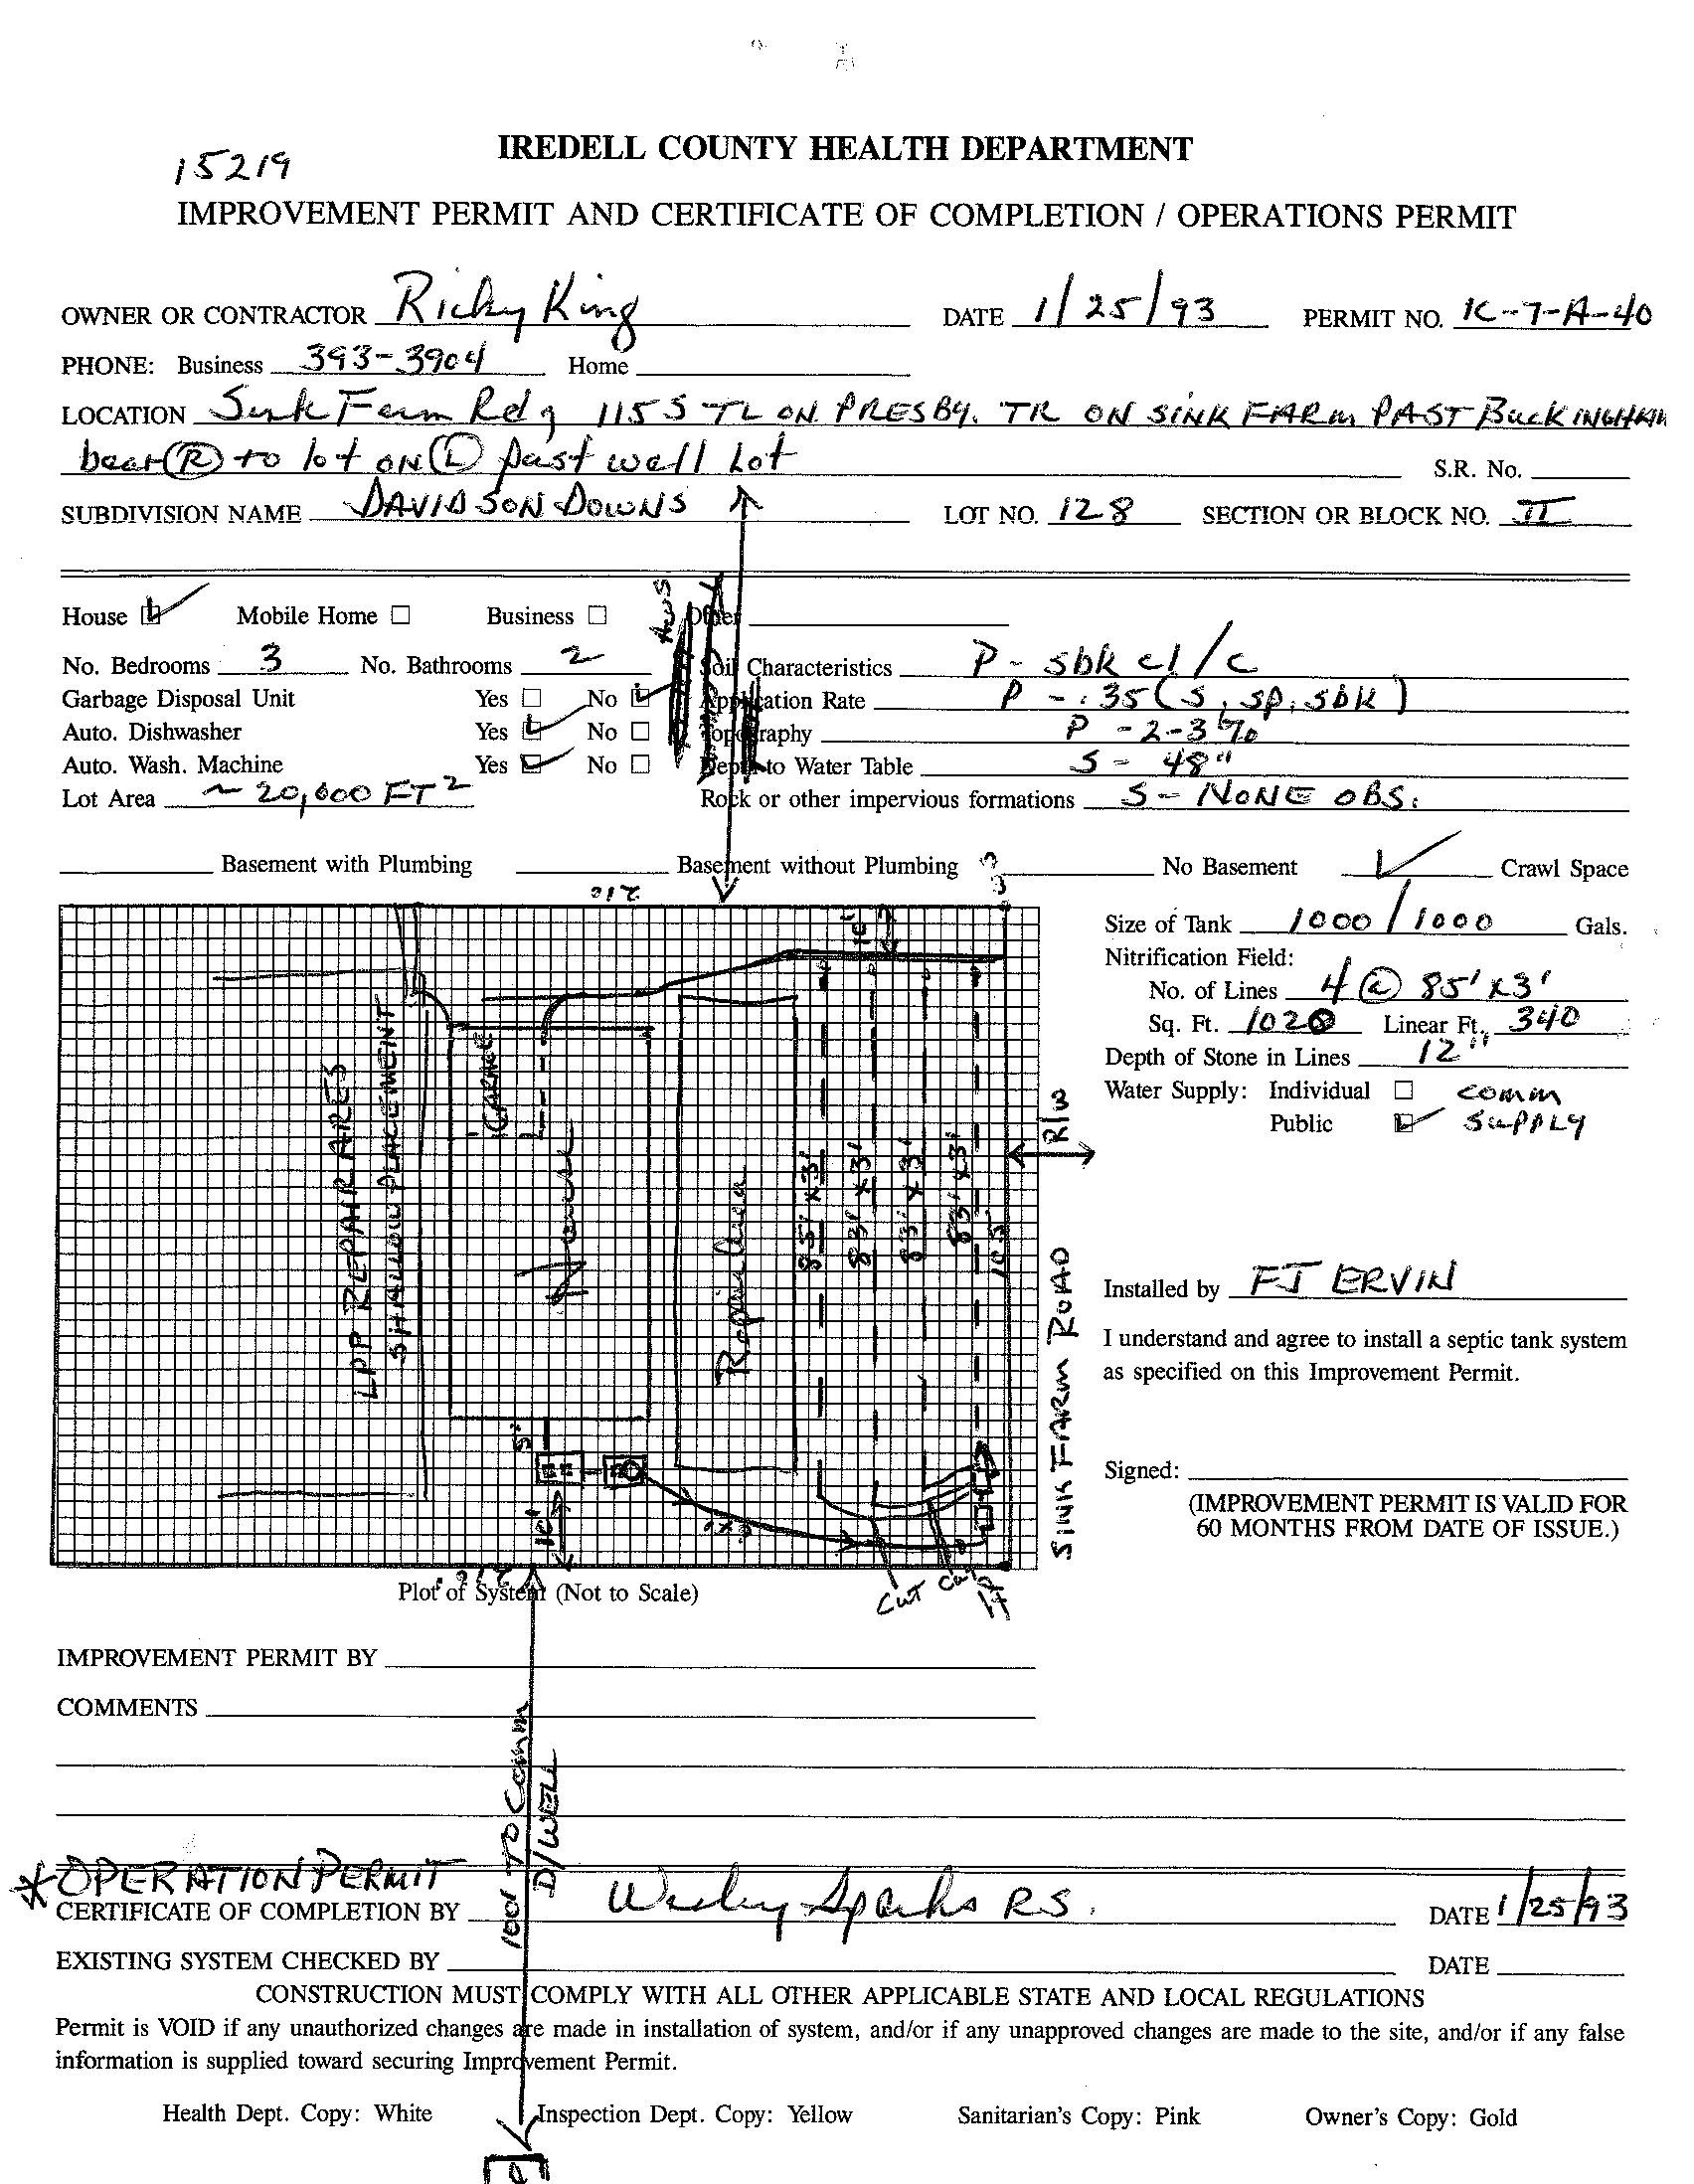 15219
IREDELL COUNTY HEALTH DEPARTMENT
IMPROVEMENT PERMIT AND CERTIFICATE OF COMPLETION / OPERATIONS PERMIT
OWNER OR CONTRACTOR Ricky King DATE 1/25/93 PERMIT NO. K-7-A-40
PHONE: Business 393-3904 Home
LOCATION Sink Farm Rd 115 S TL ON PRESBY. TR ON SINK FARM PAST BUCKINGHAM
bear (R) to lot ON (L) past well Lot S.R. No.
SUBDIVISION NAME DAVIDSON DOWNS LOT NO. 128 SECTION OR BLOCK NO. II
House Mobile Home Business Other
No. Bedrooms 3 No. Bathrooms 2 Soil Characteristics P - sbk cl/c
Garbage Disposal Unit Yes No Application Rate P - .35 (s, sp, sbk)
Auto. Dishwasher Yes No Topography P - 2-3%
Auto. Wash. Machine Yes No Depth to Water Table S - 48"
Lot Area ~ 20,000 FT2 Rock or other impervious formations S - NONE OBS.
Basement with Plumbing Basement without Plumbing No Basement Crawl Space
212
10'
Size of Tank 1000/1000 Gals.
Nitrification Field:
No. of Lines 4 @ 85' x 3'
Sq. Ft. 1020 Linear Ft. 340
Depth of Stone in Lines 12"
Water Supply: Individual comm
Public SUPPLY
LPP REPAIR AREA
SHALLOW PLACEMENT
GARAGE
House
Repair Area
85' x 3'
83' x 3'
83' x 3'
83' x 3'
105
R/W
SINK FARM ROAD
5'
10'
Installed by FJ ERVIN
I understand and agree to install a septic tank system
as specified on this Improvement Permit.
Signed:
(IMPROVEMENT PERMIT IS VALID FOR
60 MONTHS FROM DATE OF ISSUE.)
Cut
Plot of System (Not to Scale)
IMPROVEMENT PERMIT BY
COMMENTS
100' TO Comm
D/WELL
* OPERATION PERMIT
CERTIFICATE OF COMPLETION BY Wesley Sparks R.S. DATE 1/25/93
EXISTING SYSTEM CHECKED BY DATE
CONSTRUCTION MUST COMPLY WITH ALL OTHER APPLICABLE STATE AND LOCAL REGULATIONS
Permit is VOID if any unauthorized changes are made in installation of system, and/or if any unapproved changes are made to the site, and/or if any false
information is supplied toward securing Improvement Permit.
Health Dept. Copy: White Inspection Dept. Copy: Yellow Sanitarian's Copy: Pink Owner's Copy: Gold